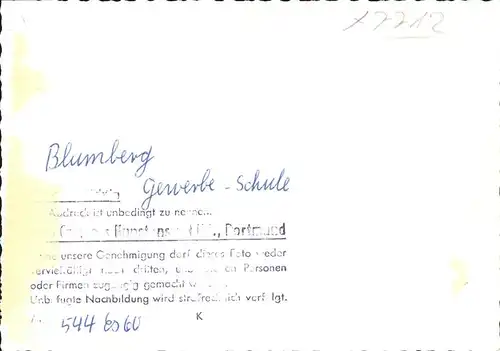 x7712
Blumberg
Gewerbe-Schule
Ausdruck ist unbedingt zu
Dortmund
unsere Genehmigung darf dieses Foto weder
vervielfältigt noch dritten, Personen
oder Firmen zugängig gemacht
Unbefugte Nachbildung wird strafrechtlich verfolgt.
544 6060 K